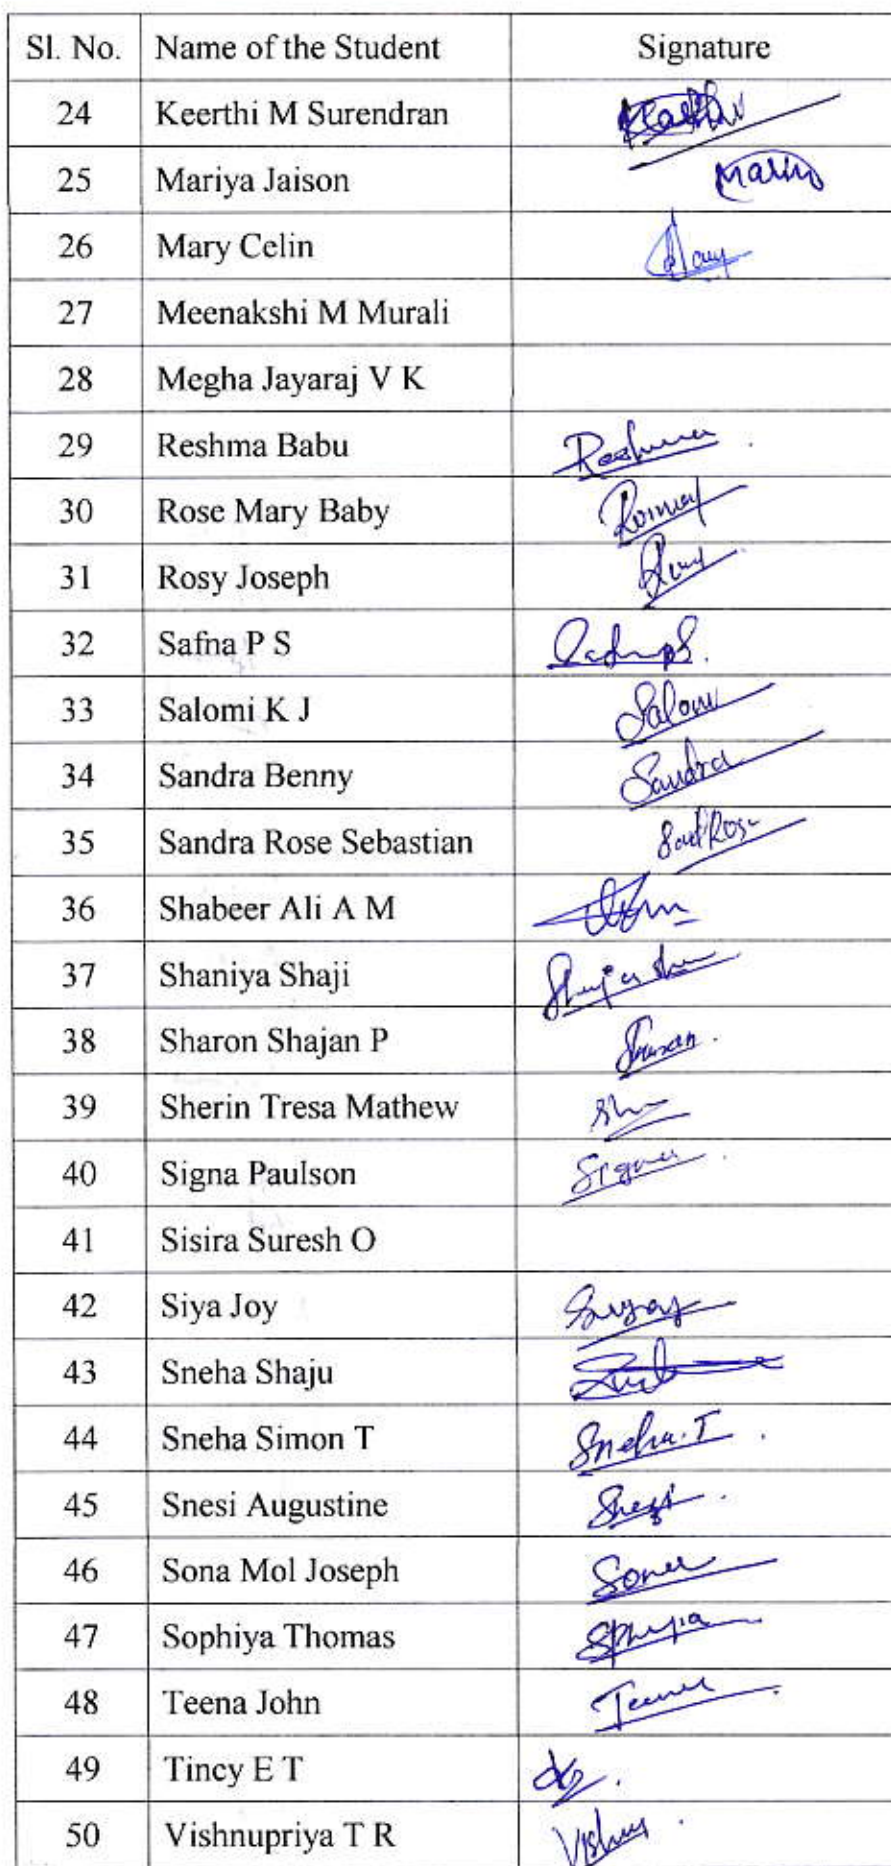 Sl. No. Name of the Student Signature
24 Keerthi M Surendran
25 Mariya Jaison
26 Mary Celin Mary
27 Meenakshi M Murali
28 Megha Jayaraj V K
29 Reshma Babu Reshma
30 Rose Mary Baby
31 Rosy Joseph
32 Safna P S
33 Salomi K J Salomi
34 Sandra Benny Sandra
35 Sandra Rose Sebastian
36 Shabeer Ali A M
37 Shaniya Shaji
38 Sharon Shajan P
39 Sherin Tresa Mathew
40 Signa Paulson Signa
41 Sisira Suresh O
42 Siya Joy
43 Sneha Shaju
44 Sneha Simon T Sneha.T
45 Snesi Augustine Snesi
46 Sona Mol Joseph Sona
47 Sophiya Thomas
48 Teena John Teena
49 Tincy E T
50 Vishnupriya T R Vishnu